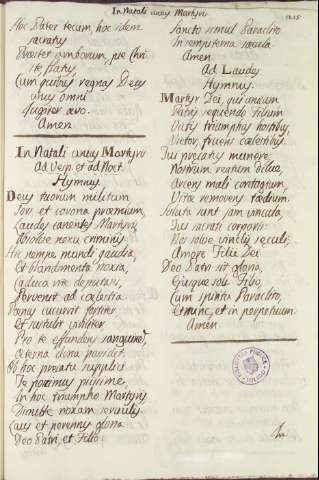 In Natali unius Martyris
Hoc Pater tecum, hoc idem
sacratis
Præstet symbolum, pie Chri
ste flatu
Cum quibus regnas Deus
unus omni
Jugiter ævo.
Amen.
In Natali unius Martyris
Ad Vesp. et ad Noct.
Hymnus.
Deus tuorum militum
Sors et corona præmium,
Laudes canentes Martyris
Absolve nexu criminis
Hic nempe mundi gaudia,
Et blandimenta noxia,
Caduca rite deputans,
Pervenit ad cælestia.
Pænas cucurrit fortiter,
Et sustulit viriliter,
Pro te effundens sanguinē,
Æterna dona possidet.
Ob hoc precatu supplici
Te poscimus piissime,
In hoc triumpho Martyris
Dimitte noxam servulis,
Laus et perennis gloria
Deo Patri, et Filio,
Sancto simul Paraclito
In sempiterna sæcula.
Amen.
Ad Laudes
Hymnus.
Martyr Dei, qui unicum
Patris sequendo Filium
Victis triumphas hostibus,
Victor, fruens cælestibus.
Tui precatus munere,
Nostrum reatum dilue,
Arcens mali contagium,
Vitæ removens tædium.
Soluta sunt jam vincula
Tui sacrati corporis:
Nos solve vinclis sæculi,
Amore Filii Dei
Deo Patri sit gloria,
Ejusque soli Filio,
Cum spiritu Paraclito,
Et nunc, et in perpetuum.
Amen.
BIBLIOTECA PUBLICA